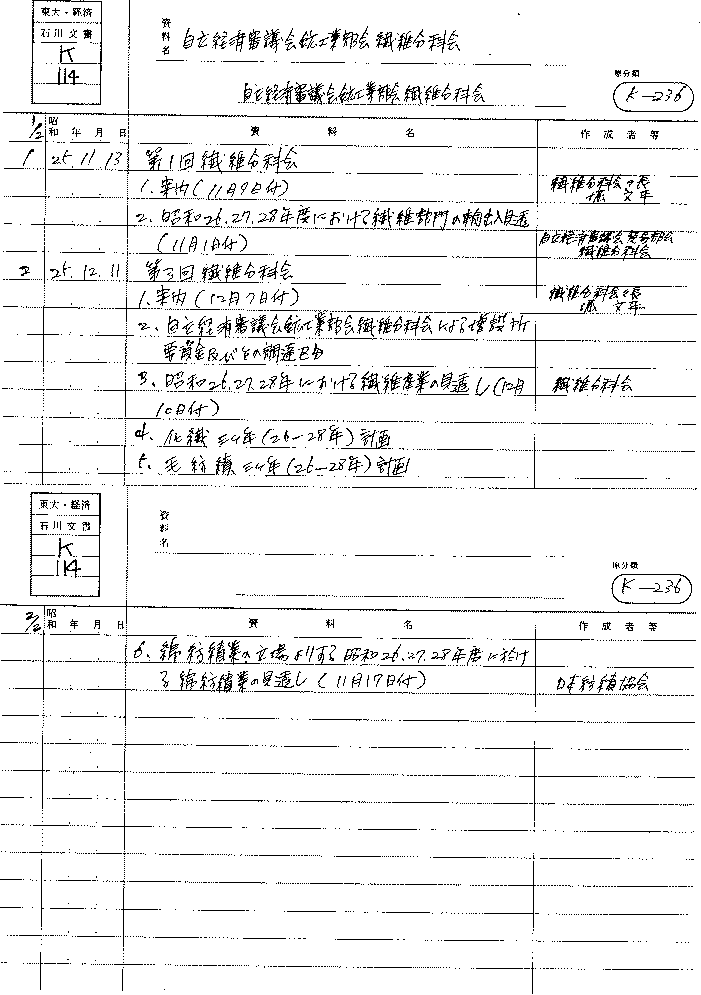 東大・経済
石川文書
K
114
資料名 自立経済審議会鉱工業部会繊維分科会
自立経済審議会鉱工業部会繊維分科会
原分類
K-236
1/2 昭和 年 月 日 資 料 名 作成者等
1 25.11.13 第1回繊維分科会
1.案内(11月9日付) 繊維分科会々長
2.昭和26.27.28年度における繊維部門の輸出入見透
(11月1日付) 自立経済審議会貿易部会
繊維分科会
2 25.12.11 第3回繊維分科会
1.案内(12月7日付) 繊維分科会々長
2.自立経済審議会鉱工業部会繊維分科会による増設所
要資金及びその調達区分
3.昭和26.27.28年における繊維産業の見透し(12月 繊維分科会
10日付)
4.化繊三ヶ年(26-28年)計画
5.毛紡績三ヶ年(26-28年)計画
東大・経済
石川文書
K
114
資料名
原分類
K-236
2/2 昭和 年 月 日 資 料 名 作成者等
6.綿紡績業の立場よりする昭和26.27.28年度に於け
る綿紡績業の見透し(11月17日付) 日本紡績協会